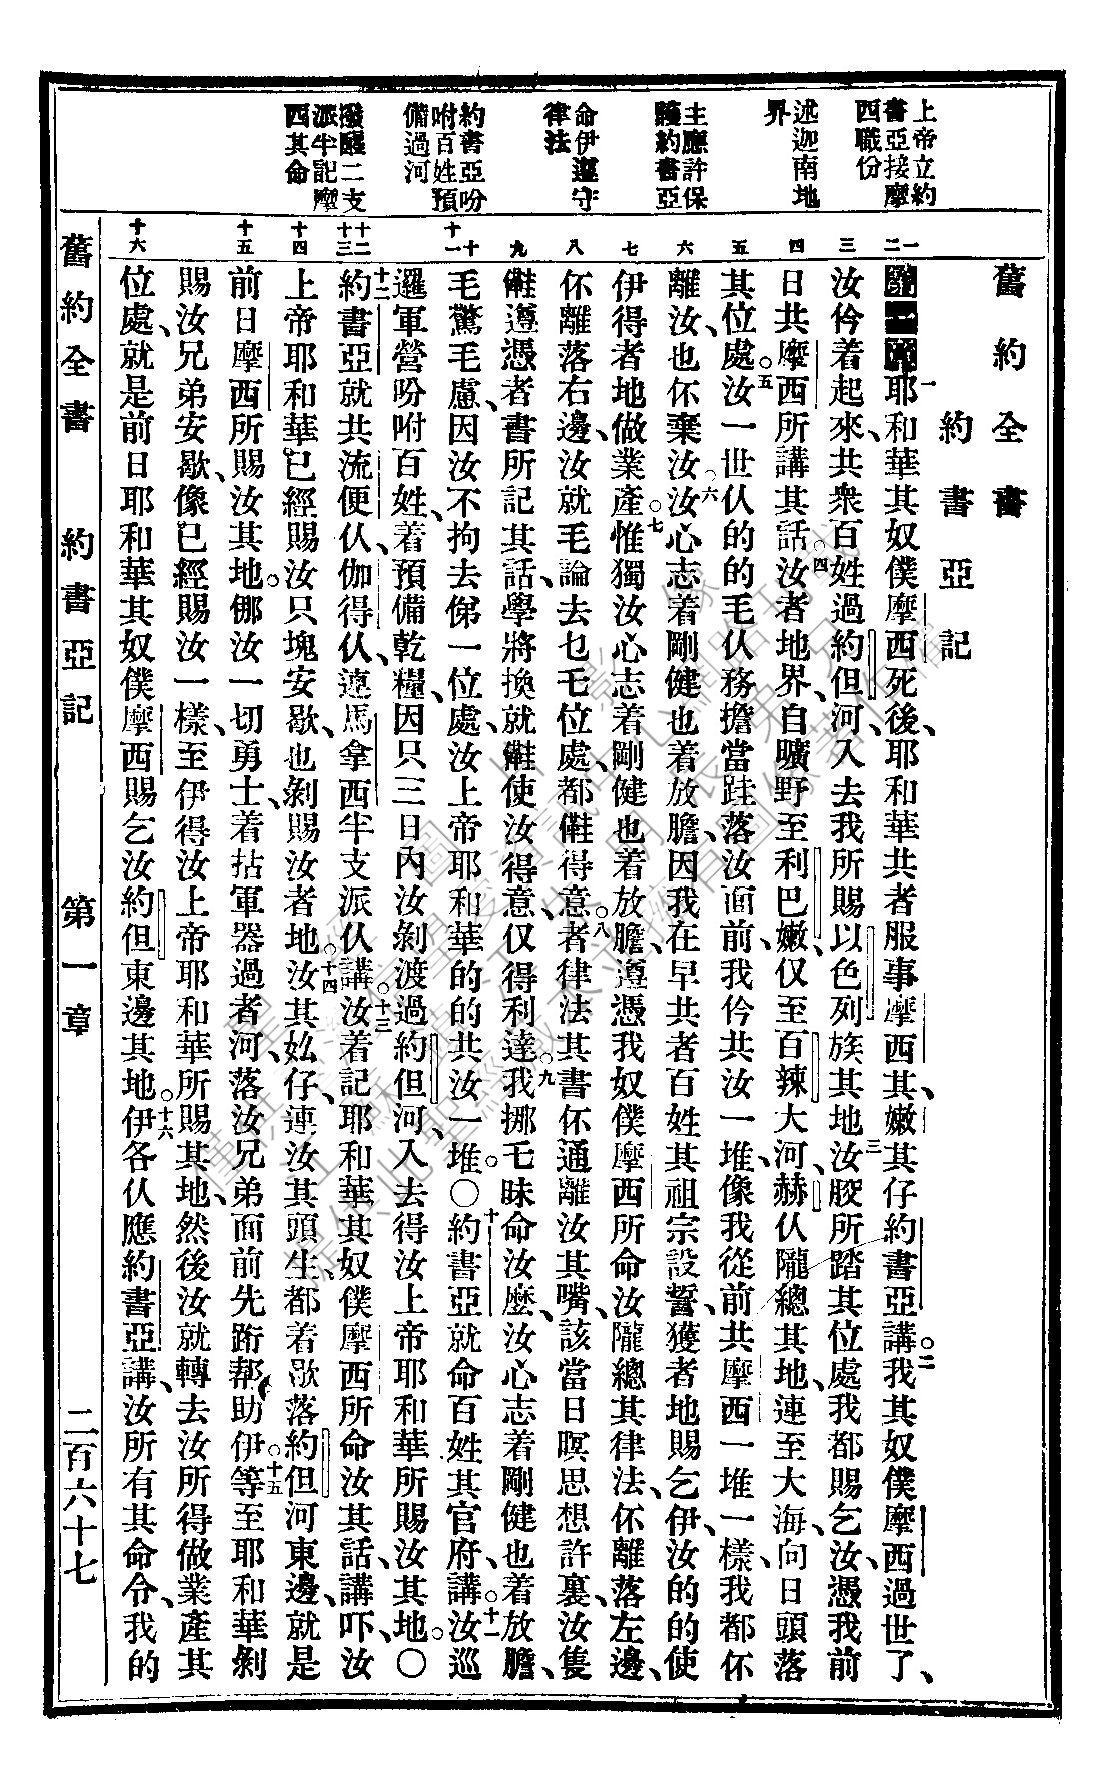 舊約全書
約書亞記
上帝立約
書亞接摩
西職份
述迦南地
界
主應許保
護約書亞
命伊遵守
律法
約書亞吩
咐百姓預
備過河
撥醒二支
派半記摩
西其命
一 二 三 四 五 六 七 八 九 十 十一 十二 十三 十四 十五 十六
第一章一耶和華其奴僕摩西死後、耶和華共者服事摩西其、嫩其仔約書亞講。二我其奴僕摩西過世了、
汝仱着起來、共衆百姓過約但河、入去我所賜以色列族其地。三汝骹所踏其位處、我都賜乞汝、憑我前
日共摩西所講其話。四汝者地界、自曠野至利巴嫩、仅至百辣大河、赫仈隴總其地、連至大海、向日頭落
其位處。五汝一世仈的的毛仈務擔當跬落汝面前、我仱共汝一堆、像我從前共摩西一堆一樣、我都伓
離汝、也伓棄汝。六汝心志着剛健也着放膽、因我在早共者百姓其祖宗設誓、獲者地賜乞伊、汝的的使
伊得者地做業產。七惟獨汝心志着剛健也着放膽、遵憑我奴僕摩西所命汝隴總其律法、伓離落左邊、
伓離落右邊、汝就毛論去乜乇位處、都㑚得意。八者律法其書伓通離汝其嘴、該當日暝思想許裏、汝隻
㑚遵憑者書所記其話、學將換就㑚使汝得意、仅得利達。九我挪乇昧命汝麼、汝心志着剛健也着放膽、
毛驚毛慮、因汝不拘去俤一位處、汝上帝耶和華的的共汝一堆。〇十約書亞就命百姓其官府講。十一汝巡
邏軍營吩咐百姓、着預備乾糧、因只三日內汝剝渡過約但河、入去得汝上帝耶和華所賜汝其地。〇
十二約書亞就共流便仈、伽得仈、連馬拿西半支派仈講。十三汝着記耶和華其奴僕摩西所命汝其話、講吓、汝
上帝耶和華已經賜汝只塊安歇、也剝賜汝者地。十四汝其奻仔、連汝其頭生、都着歇落約但河東邊、就是
前日摩西所賜汝其地。㑚汝一切勇士、着拈軍器過者河、落汝兄弟面前先跨、幫助伊等。十五至耶和華剝
賜汝兄弟安歇、像已經賜汝一樣、至伊得汝上帝耶和華所賜其地、然後汝就轉去汝所得做業產其
位處、就是前日耶和華其奴僕摩西賜乞汝約但東邊其地。十六伊各仈應約書亞講、汝所有其命令、我的
舊約全書 約書亞記 第一章 二百六十七